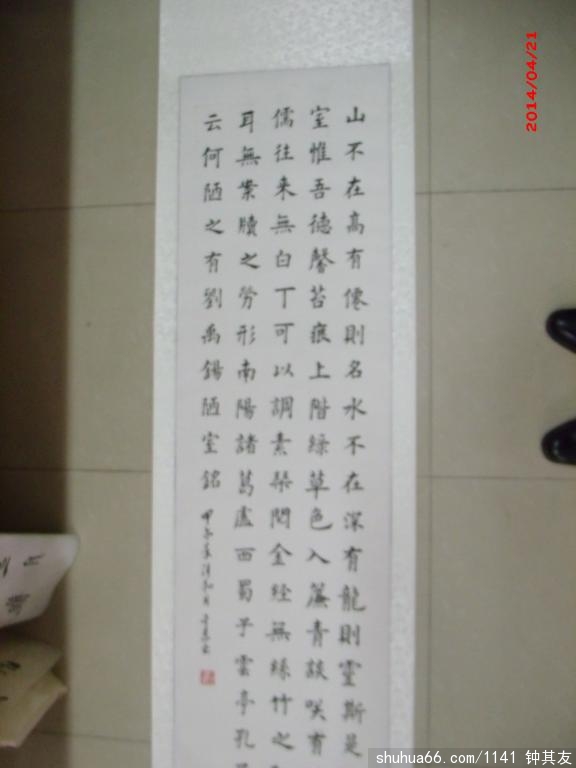 山不在高有僊則名水不在深有龍則靈斯是
室惟吾德馨苔痕上階綠草色入簾青談咲有
儒往来無白丁可以調素琴閱金経無絲竹之
耳無案牘之劳形南陽諸葛廬西蜀子雲亭孔
云何陋之有劉禹錫陋室銘
甲午年清和月
2014/04/21
shuhua66.com/1141 钟其友